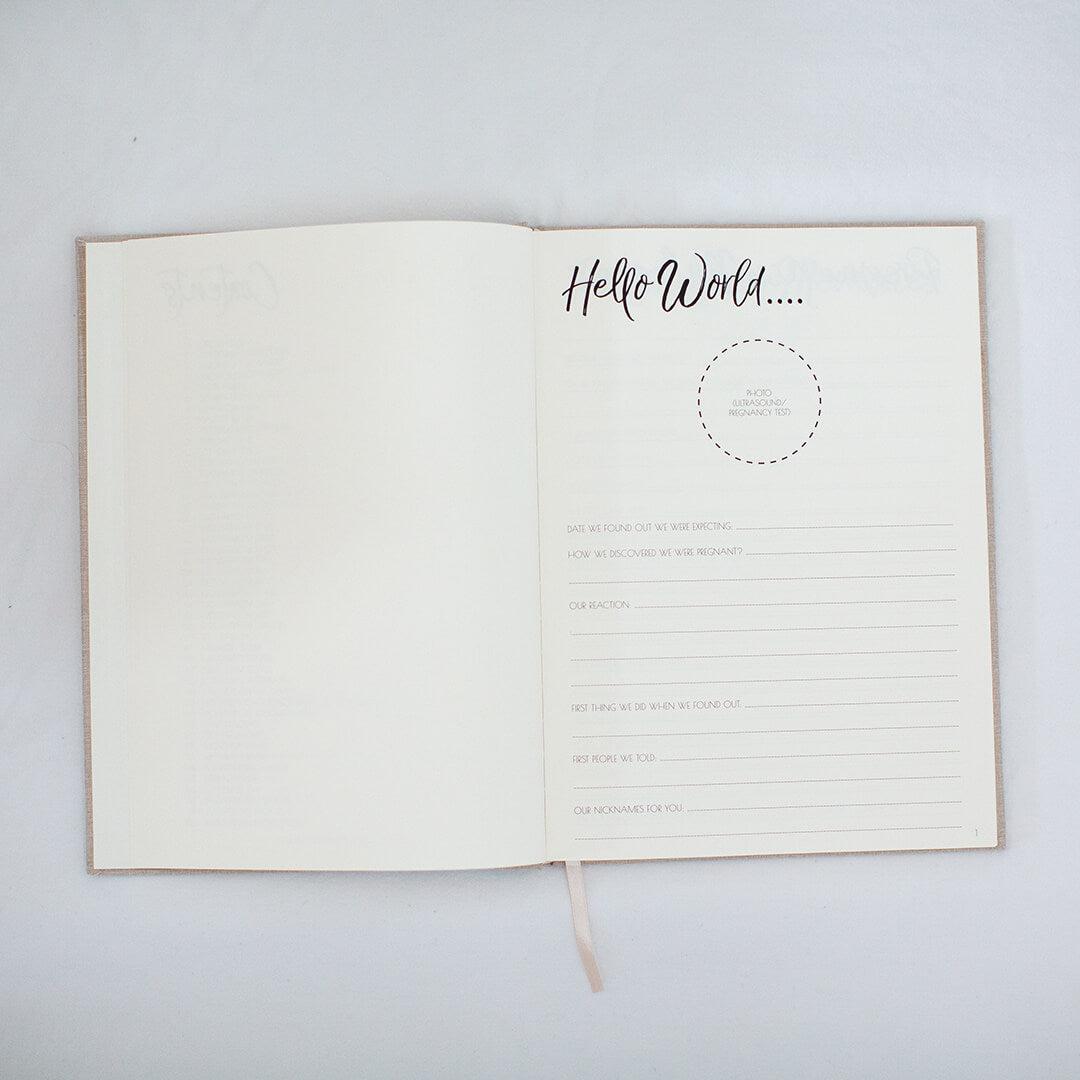 Hello World....
PHOTO
(ULTRASOUND/
PREGNANCY TEST)
DATE WE FOUND OUT WE WERE EXPECTING:
HOW WE DISCOVERED WE WERE PREGNANT?
OUR REACTION:
FIRST THING WE DID WHEN WE FOUND OUT:
FIRST PEOPLE WE TOLD:
OUR NICKNAMES FOR YOU:
1